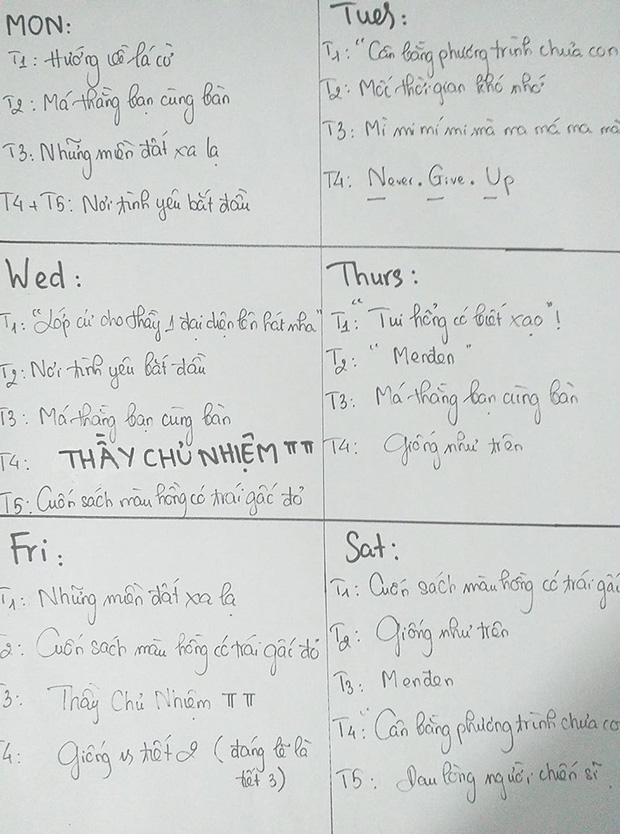 MON:
T1: Hướng về lá cờ
T2: Má thằng bạn cùng bàn
T3: Những miền đất xa lạ
T4 + T5: Nơi tình yêu bắt đầu
Tues:
T1: "Cân bằng phương trình chưa con
T2: Mốc thời gian khó nhớ
T3: Mì mi mí mi mà ma má ma mà
T4: Never. Give. Up
Wed:
T1: "Lớp cử cho thầy 1 đại diện lên hát nha"
T2: Nơi tình yêu bắt đầu
T3: Má thằng bạn cùng bàn
T4: THẦY CHỦ NHIỆM π π
T5: Cuốn sách màu hồng có trái gấc đỏ
Thurs:
T1: "Tui hổng có biết xạo"!
T2: "Menden"
T3: Má thằng bạn cùng bàn
T4: Giống như trên
Fri:
T1: Những miền đất xa lạ
2: Cuốn sách màu hồng có trái gấc đỏ
3: Thầy Chủ Nhiệm π π
4: Giống vs tiết 2 (đáng lẽ là
tiết 3)
Sat:
T1: Cuốn sách màu hồng có trái gấ
T2: Giống như trên
T3: Menden
T4: "Cân bằng phương trình chưa co
T5: Đau lòng người chiến sĩ